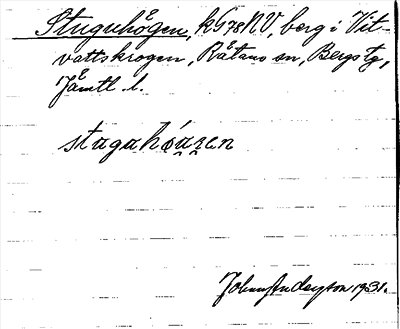 Stuguhögen, kG78NV, berg i Vit-
vattskrogen, Rätans sn, Bergs tg,
Jämtl. l.
stuguhö́gen
John Anderson 1931.